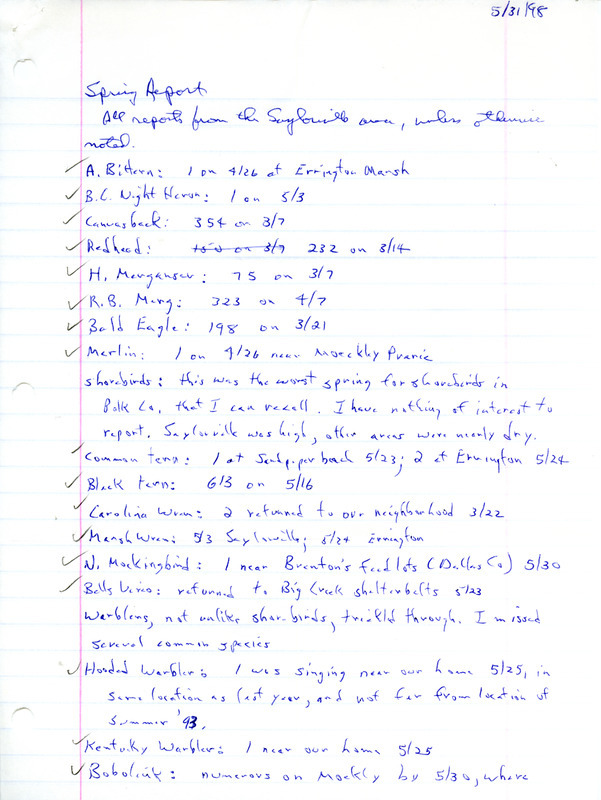 5/31/98
Spring Report
All reports from the Saylorville area, unless otherwise
noted.
A. Bittern: 1 on 4/26 at Errington Marsh
B.C. Night Heron: 1 on 5/3
Canvasback: 354 on 3/7
Redhead: 150 on 3/7 232 on 3/14
H. Merganser: 75 on 3/7
R.B. Merg: 323 on 4/7
Bald Eagle: 198 on 3/21
Merlin: 1 on 4/26 near Moeckly Prarie
shorebirds: this was the worst spring for shorebirds in
Polk Co. that I can recall. I have nothing of interest to
report. Saylorville was high, other areas were nearly dry.
Common tern: 1 at Sandpiper beach 5/23; 2 at Errington 5/24
Black tern: 63 on 5/16
Carolina Wren: 2 returned to our neighborhood 3/22
Marsh Wren: 5/3 Saylorville; 5/24 Errington
N. Mockingbird: 1 near Brenton's feed lots (Dallas Co) 5/30
Bells Vireo: returned to Big Creek shelterbelts 5/23
Warblers, not unlike shorebirds, trickled through. I missed
several common species
Hooded Warbler: 1 was singing near our home 5/25, in
same location as last year, and not far from location of
summer '93.
Kentucky Warbler: 1 near our home 5/25
Bobolink: numerous on Mockly by 5/30, where